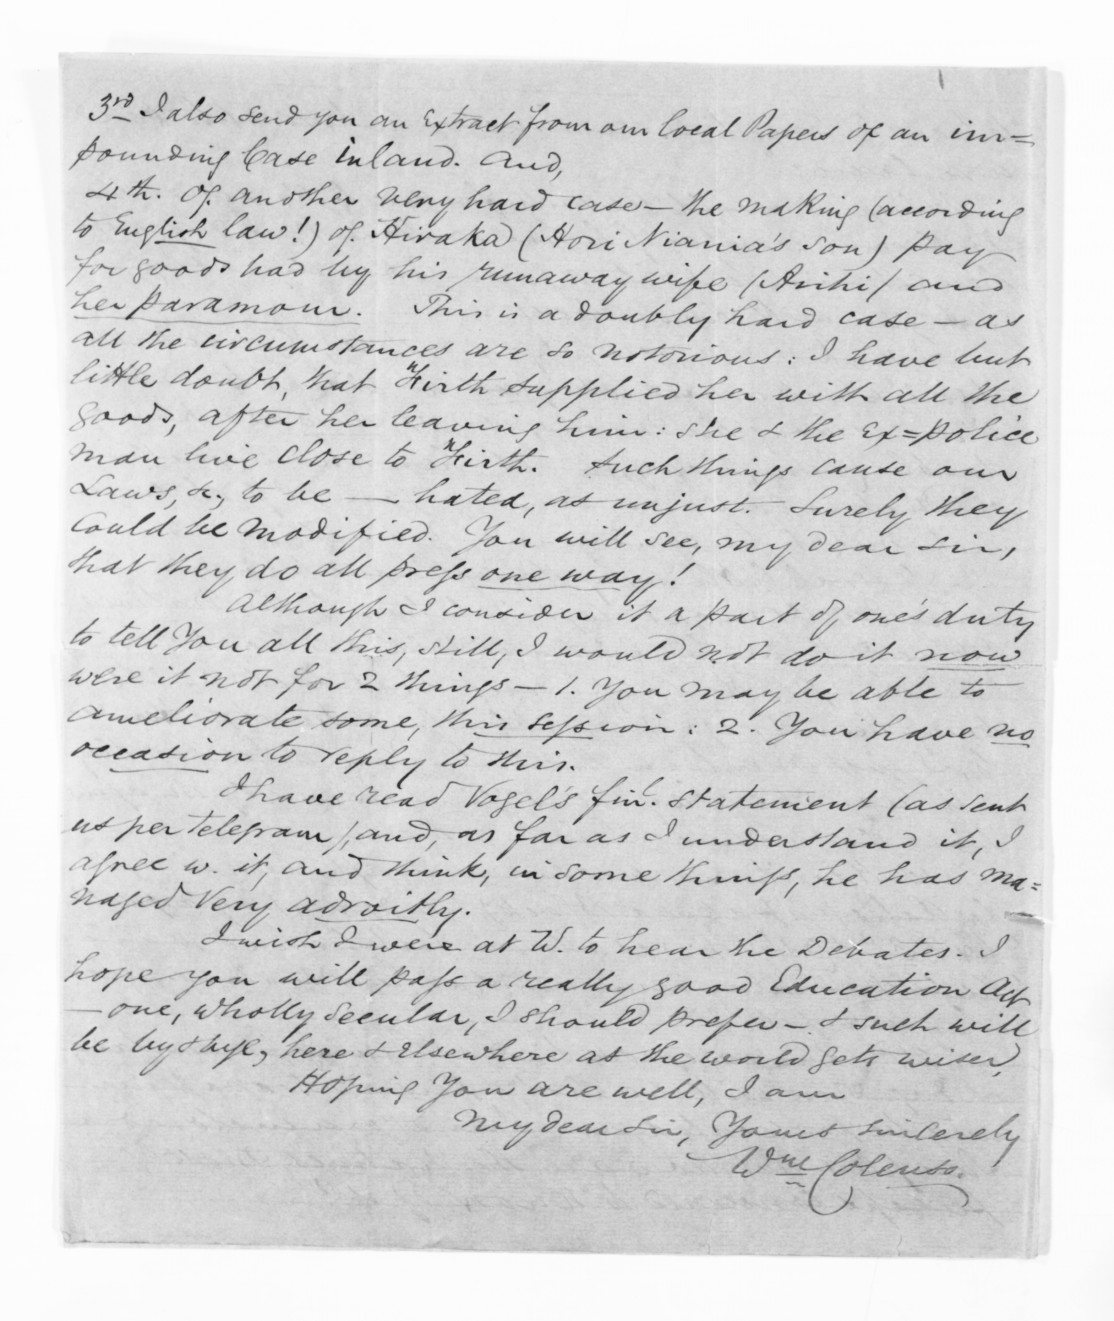 3rd I also send you an Extract from our local Papers of an im=
pounding Case inland. And,
4th. Of another very hard case — the making (according
to English law!) of Hiraka (Hori Niania's son) pay
for goods had by his runaway wife (Arihi) and
her paramour. This is a doubly hard case — as
all the circumstances are so notorious: I have but
little doubt, that Firth supplied her with all the
goods, after her leaving him: she & the Ex=police
man live close to Firth. Such things cause our
Laws, &c., to be — hated, as unjust. Surely they
could be modified. You will see, my dear Sir,
that they do all press one way!
Although I consider it a part of one's duty
to tell You all this, still, I would not do it now
were it not for 2 things — 1. You may be able to
ameliorate some, this session: 2. You have no
occasion to reply to this.
I have read Vogel's finl. Statement (as sent
us per telegram), and, as far as I understand it, I
agree w. it, and think, in some things, he has ma=
naged very adroitly.
I wish I were at W. to hear the Debates. I
hope you will pass a really good Education Act
— one, wholly secular, I should prefer — & such will
be by & bye, here & elsewhere as the world gets wiser.
Hoping You are well, I am
My dear Sir, Yours sincerely
Wm Colenso.